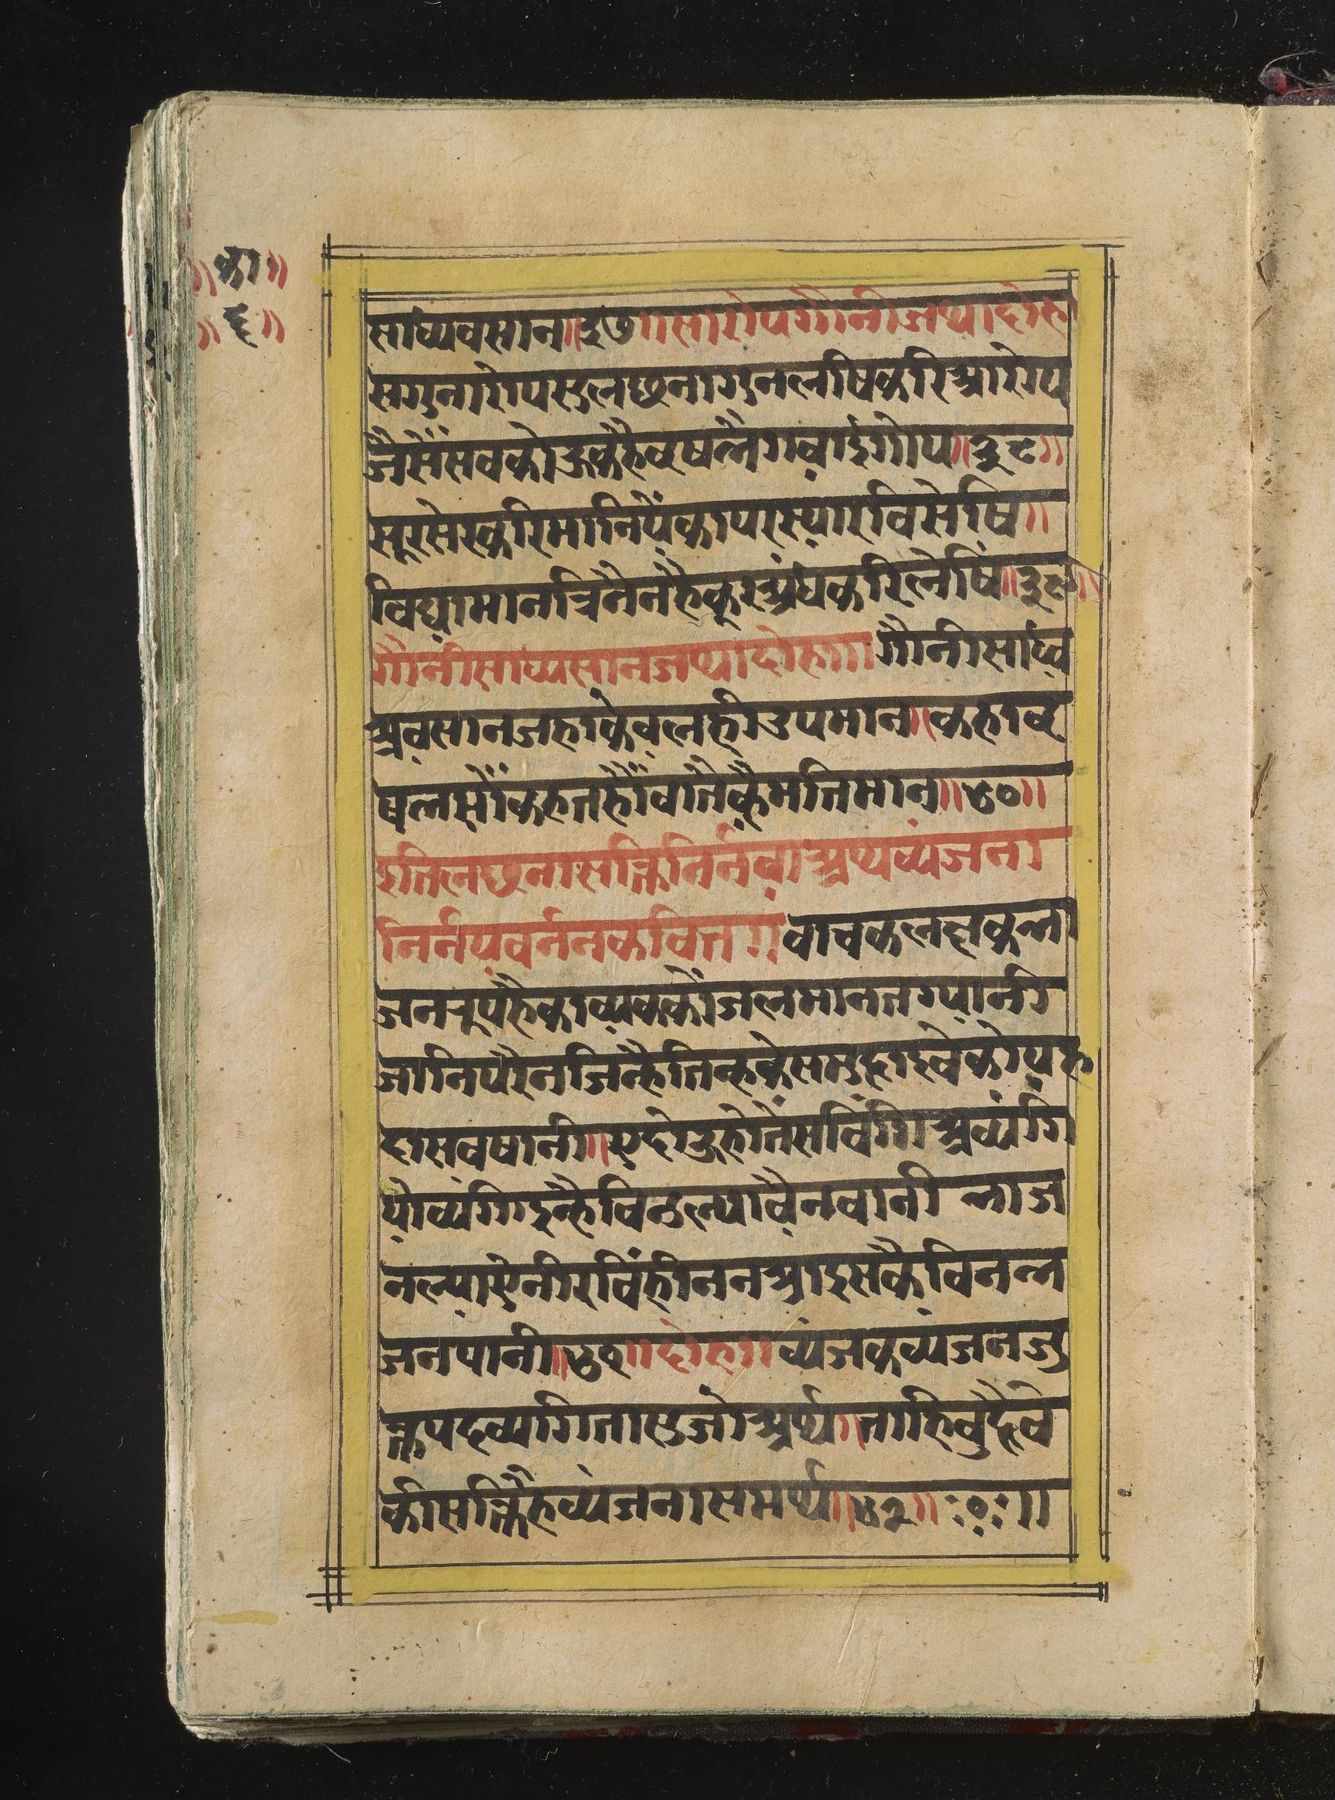 ॥का॥
॥६॥
साध्यवसान॥३७॥सारोपगौनीजथादोहा
सगुनारोपसुलछनागुनलषिकरिआरोप
जैसेंसवकोऊकहैवृषलैगवाइंगोप॥३८॥
सूरसेरकरिमानियैंकापरस्यारविसेषि॥
विद्यामानत्रिनैनहैकूरअंधकरिलेषिं॥३९॥
गौनीसाध्यसानजथादोहा॥गौनीसाध्य
अवसानजहाकेवलहीउपमान॥कहावृ
षलसोंकहतहौंवातैकहैमतिमान॥४०॥
इतिलछनासक्तिनिर्नवाअथव्यंजना
निर्नयवर्ननकवित॥वाचकलछकला
जनरूपहैकाव्यवकौंजलमानतग्यानी
जानिपरैनजिन्हैतिन्हकेसमुझाइवेकोयह
दासवषानी॥एदोऊहोतैसविंगिअव्यंगि
यौव्यंगिइन्हैविनुल्यावैनवानी भाज
नल्याऐनीरविंहीननआइसकैविनभ
जनपानी॥४१॥दोहा॥व्यंजकव्यंजनजु
क्तपदव्यगितासुजोअर्थ॥ताहिवुझैवे
कीसक्तिहैव्यंजनासमर्थ॥४२॥